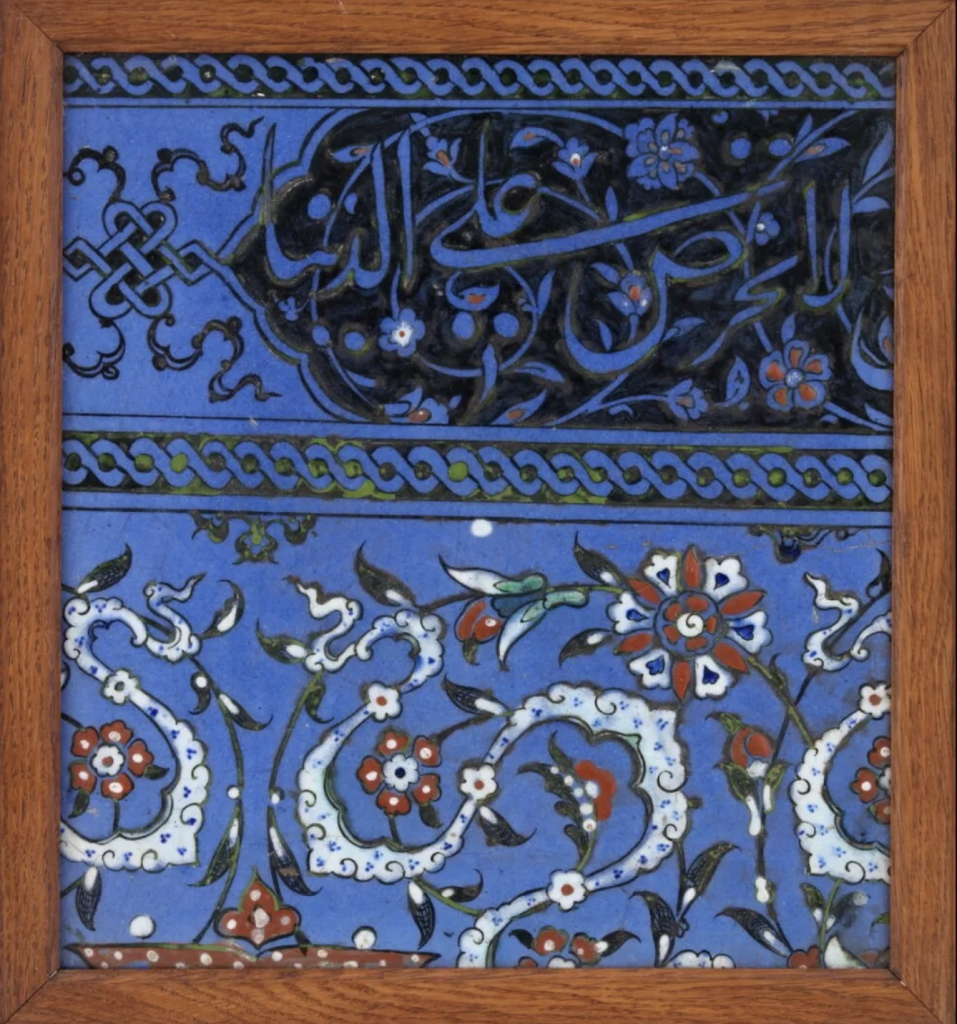 لا تحرص على الدنيا